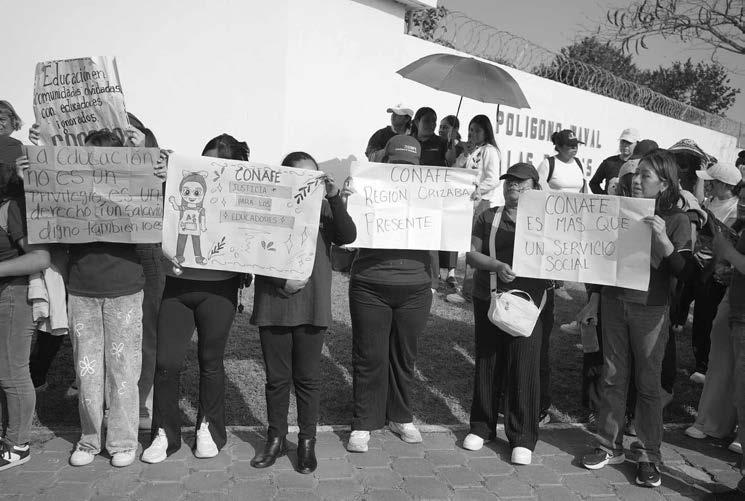 Educación en
comunidades olvidadas
con educadores
ignorados
La Educación
no es un
privilegio, es un
derecho ¡un salario
digno también lo es!
CONAFE
JUSTICIA
PARA LOS
EDUCADORES
CONAFE
REGIÓN ORIZABA
PRESENTE
CONAFE
ES MÁS QUE
UN SERVICIO
SOCIAL
POLIGONO NAVAL